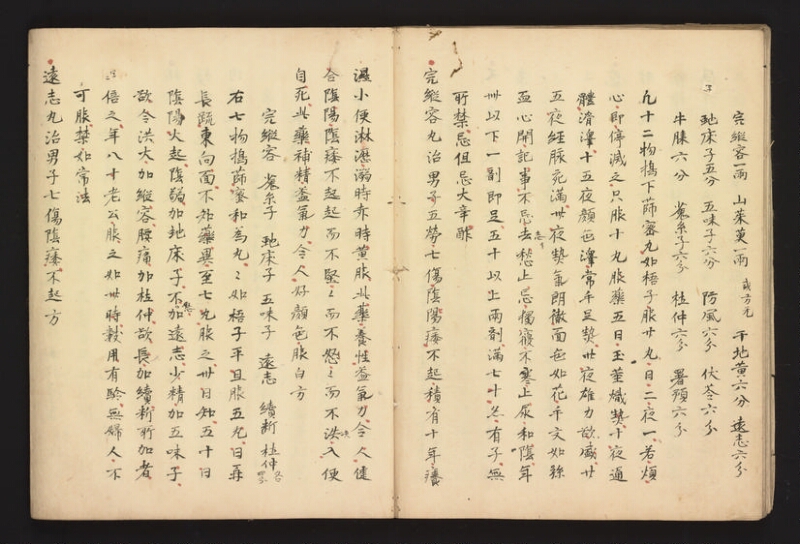 完縱容一兩 山茱萸一兩 或方无 干地黄六分 遠志六分
虵床子五分 五味子六分 防風六分 伏苓六分
牛膝六分 菟糸子六分 杜仲六分 署預六分
凡十二物搗下蒒蜜丸如梧子服廿丸日二夜一若煩
心即停減之只服十丸服藥五日玉莖熾勢十夜通
體滑澤十五夜顔色澤常手足熱廿夜雄力欲盛廿
五夜経脉充滿卅夜熱氣朗徹面色如花手文如絲
而心開記事不忘去愁止忘獨寢不寒止尿和陰年
卌以下一劑即足五十以上兩劑滿七十亦有子無
所禁忌但忌大辛酢
完縱容丸治男子五勞七傷陰陽痿不起積有十年癢
濕小便淋瀝溺時赤時黄服此藥養性益氣力令人健
合陰陽陰痿不起起而不堅堅而不怒怒而不洪入便
自死此藥補精益氣力令人好顔色服白方
完縱容 菟糸子 虵床子 五味子 遠志 續斷 杜仲 各四分
右七物搗蒒蜜和為丸丸如梧子平旦服五丸日再
長疏東向面不知藥異至七丸服之卅日知五十日
陰陽大起陰弱加虵床子不怒加遠志少精加五味子
欲令洪大加縱容腰痛加杜仲欲長加續斷所加者
倍之年八十老公服之如卌時數用有驗無婦人不
可服禁如常法
遠志丸治男子七傷陰痿不起方